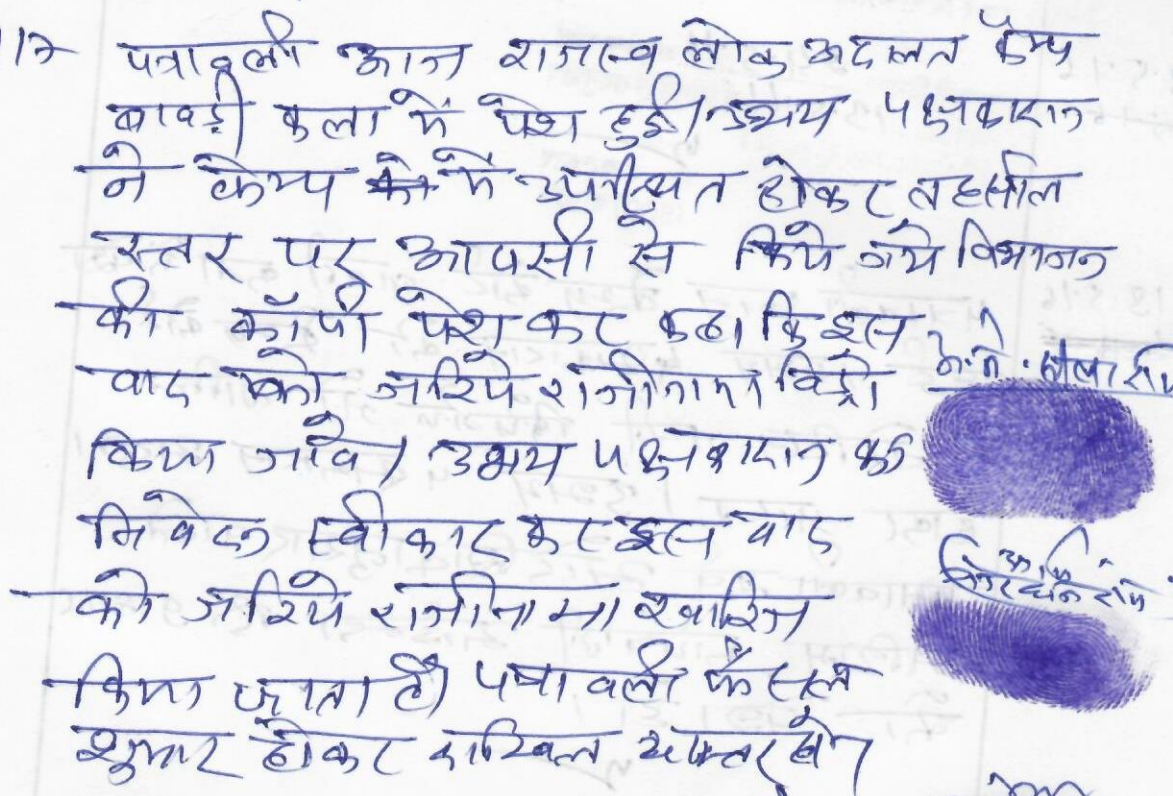 पत्रावली आज राजस्व लोक अदालत कैम्प
बावडी कला में पेश हुई। उभय पक्षकारान
ने केम्प में उपस्थित होकर तहसील
स्तर पर आपसी से किये गये विभाजन
की कॉपी पेश कर कहा कि इस
वाद को जरिये राजीनामा विड्रो
किया जावे। उभय पक्षकारान का
निवेदन स्वीकार कर इस वाद
को जरिये राजीनामा खारिज
किया जाता है। पत्रावली फैसल
शुमार होकर दाखिल दफ्तर हो।